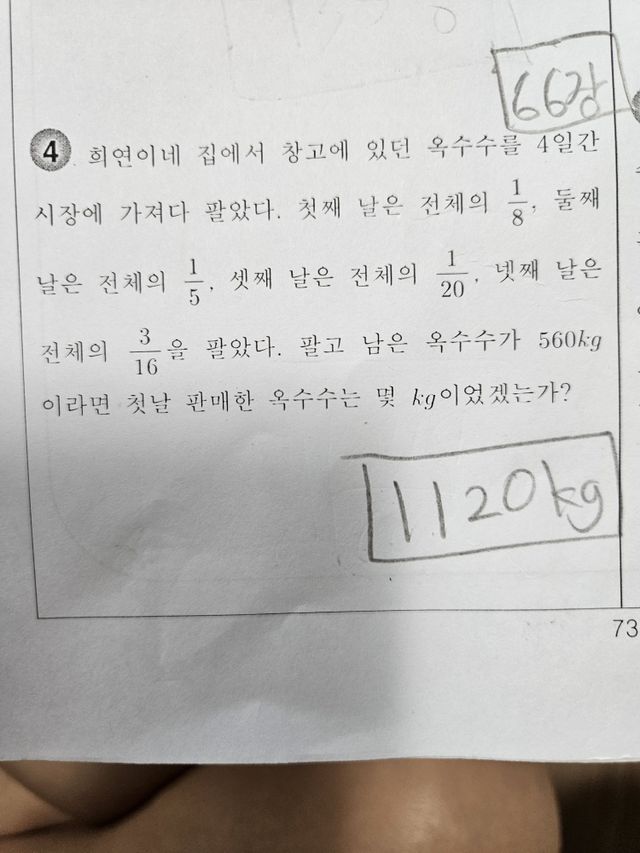 66장
4 희연이네 집에서 창고에 있던 옥수수를 4일간
시장에 가져다 팔았다. 첫째 날은 전체의 1/8, 둘째
날은 전체의 1/5, 셋째 날은 전체의 1/20, 넷째 날은
전체의 3/16을 팔았다. 팔고 남은 옥수수가 560kg
이라면 첫날 판매한 옥수수는 몇 kg이었겠는가?
1120kg
73